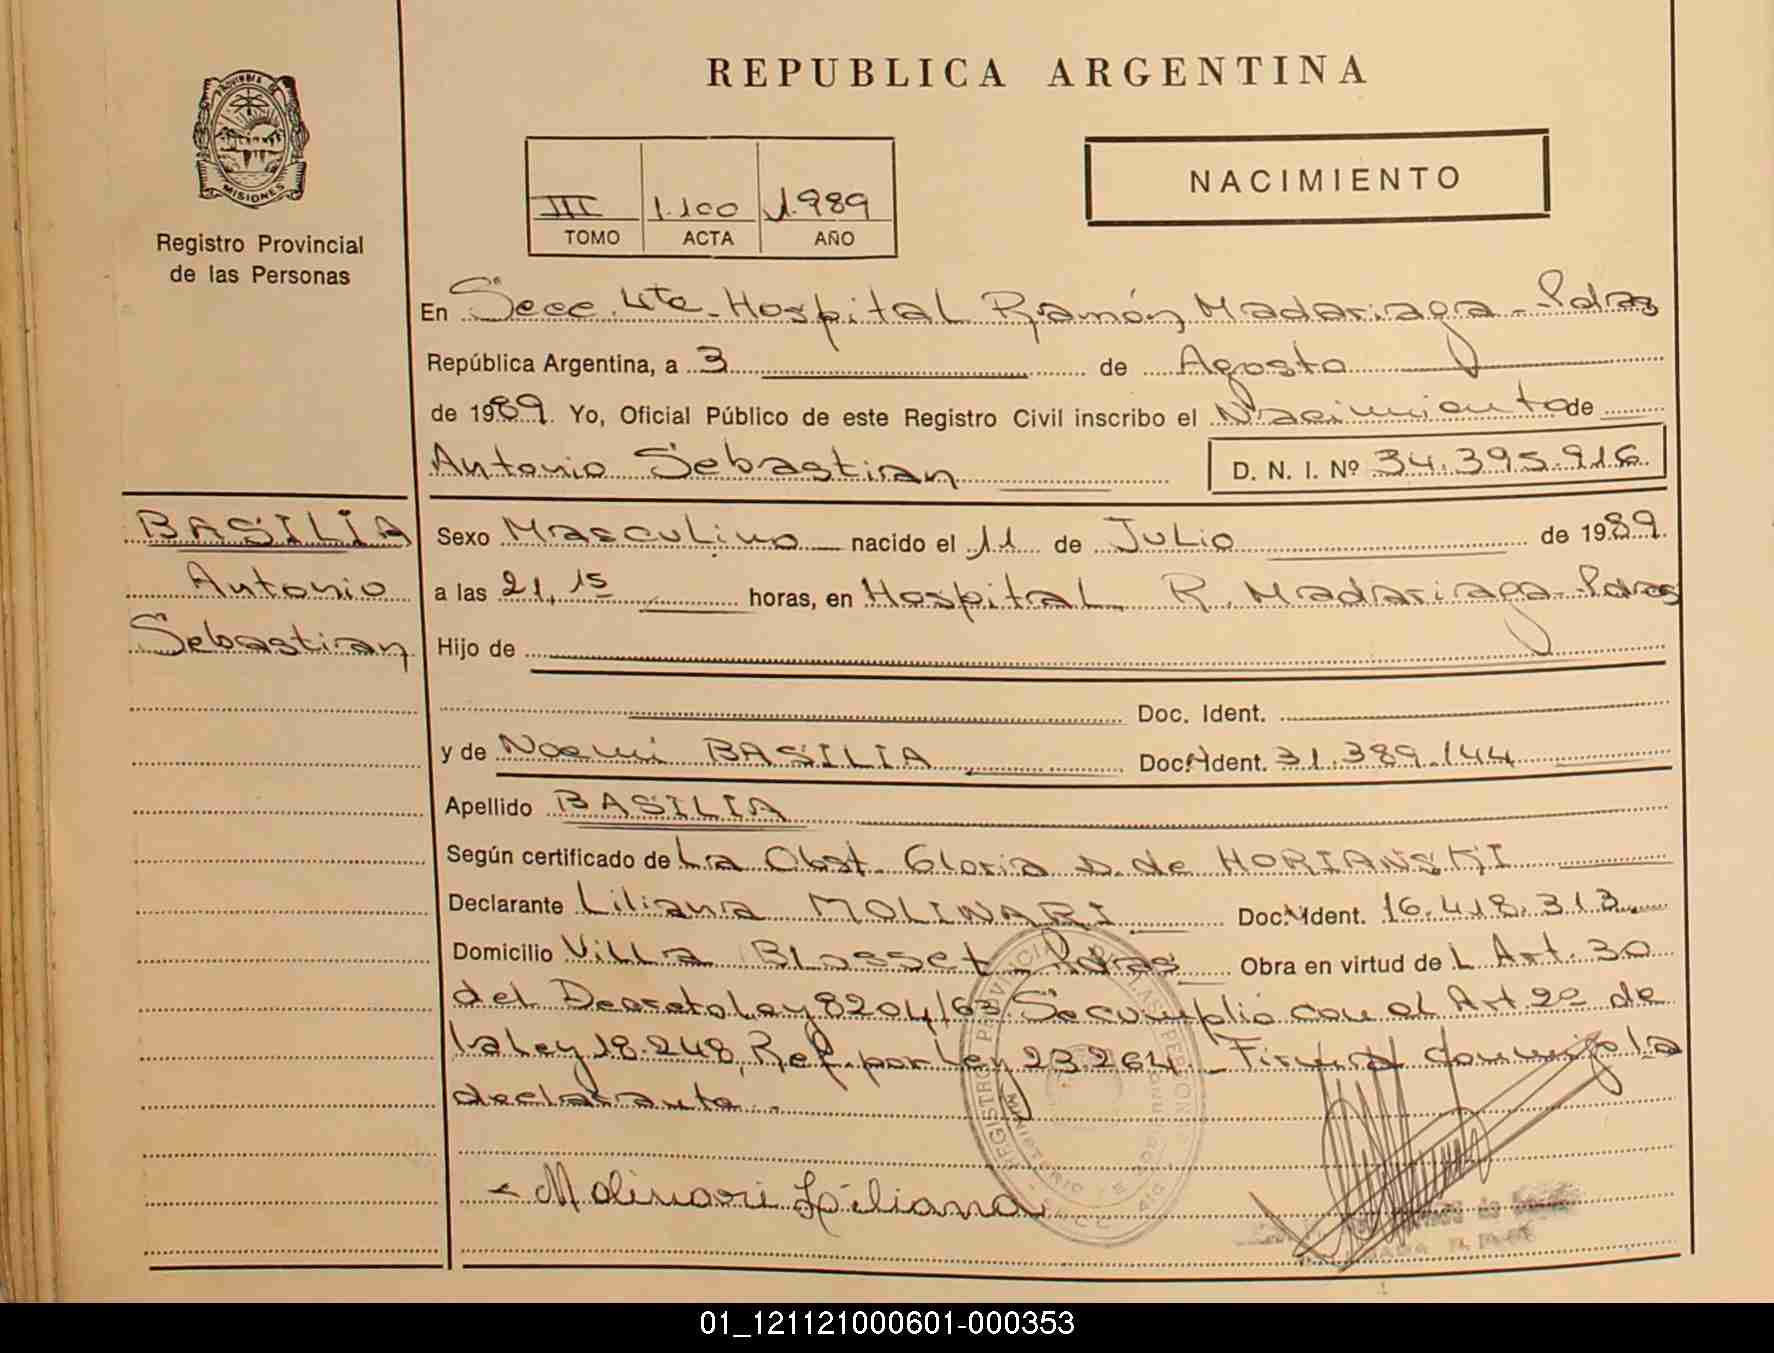 REPUBLICA ARGENTINA
PROVINCIA DE
MISIONES
Registro Provincial
de las Personas
NACIMIENTO
III 1.100 1.989
TOMO ACTA AÑO
En Secc. 4ta. Hospital Ramón Madariaga - Pdas
República Argentina, a 3 de Agosto
de 1989. Yo, Oficial Público de este Registro Civil inscribo el Nacimiento de
Antonio Sebastian D. N. I. Nº 34.395.916
BASILIA
Antonio
Sebastian
Sexo Masculino nacido el 11 de Julio de 1989.
a las 21,15 horas, en Hospital R. Madariaga - Pdas
Hijo de
Doc. Ident.
y de Noemi BASILIA Doc. Ident. 31.389.144
Apellido BASILIA
Según certificado de La Obst. Gloria D. de HORIANSKI
Declarante Liliana MOLINARI Doc. Ident. 16.418.313
Domicilio Villa Blosset - Pdas Obra en virtud de L Art. 30
del Decreto Ley 8204/63. Se cumplió con el Art 2º de
la Ley 18.248, Ref. por Ley 23.264 - Firma conmigo la
declarante.
- Molinari Liliana
REGISTRO PROVINCIAL DE LAS PERSONAS
01_121121000601-000353